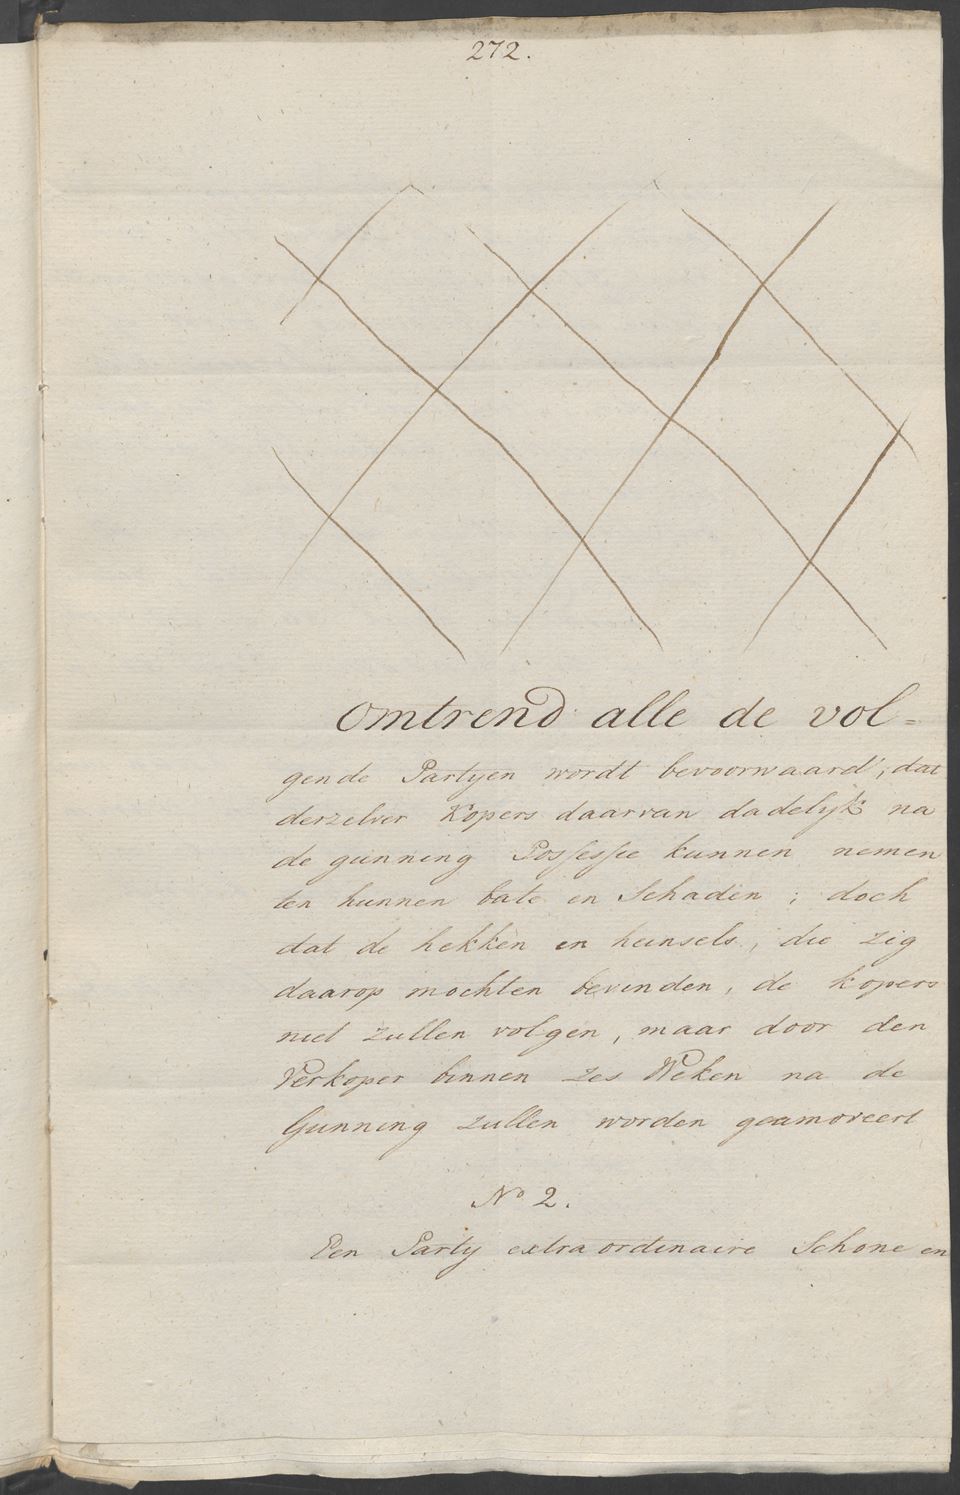 272.
Omtrend alle de vol=
gende Partyen wordt bevoorwaard, dat
derzelver Kopers daarvan dadelyk na
de gunning Possessie kunnen nemen
ten hunnen bate en Schaden; doch
dat de hekken en heinsels, die zig
daarop mochten bevinden, de kopers
niet zullen volgen, maar door den
Verkoper binnen zes Weken na de
Gunning zullen worden geamoveert
No 2.
Een Party extra ordinaire Schone en